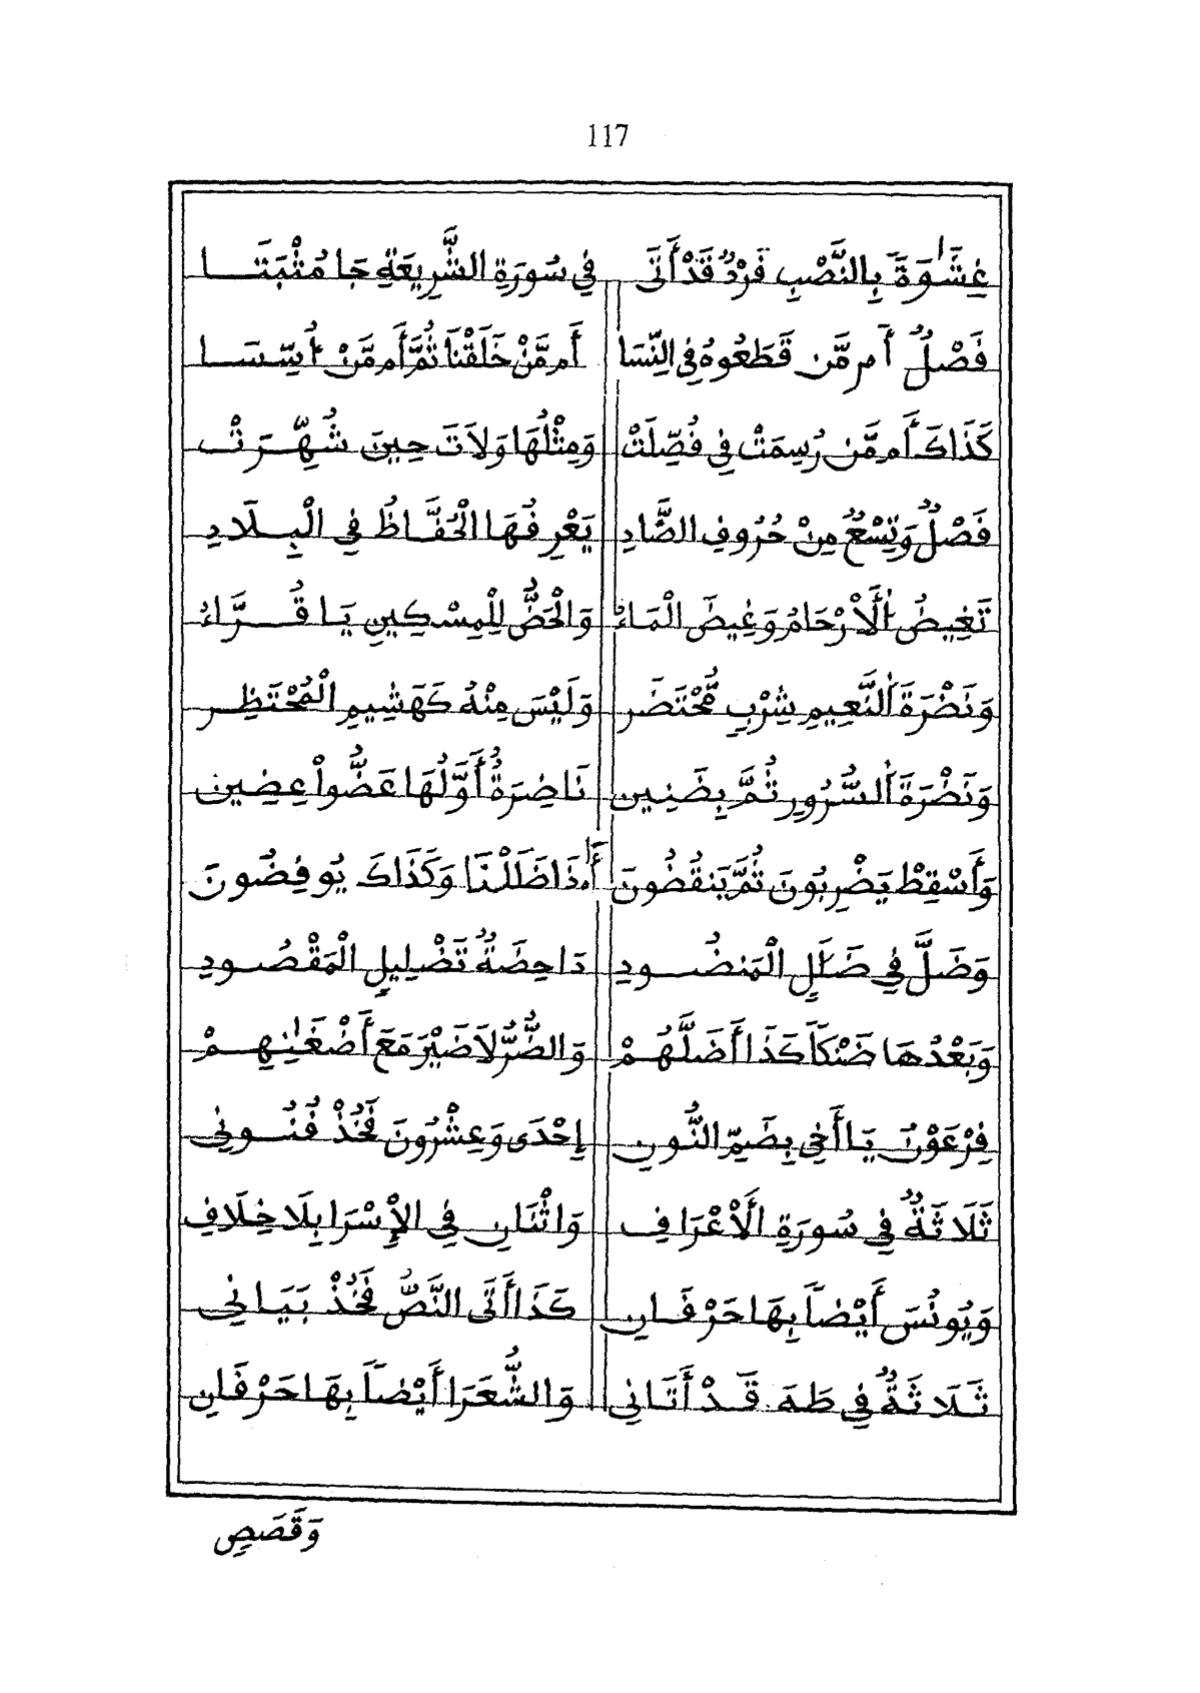 117
غِشَٰوَةً بِالنَّصْبِ فَرْدٌ قَدْ أَتَى فِي سُورَةِ الشَّرِيعَةِ جَا مُثْبَتَا
فَصْلٌ أَم مَّن قَطَعُوهُ فِي النِّسَا أَم مَّنْ خَلَقْنَا ثُمَّ أَم مَّنْ أُسِّسَا
كَذَاكَ أَم مَّن رُسِمَتْ فِي فُصِّلَتْ وَمِثْلُهَا وَلَاتَ حِينَ شُهِّرَتْ
فَصْلٌ وَتِسْعٌ مِنْ حُرُوفِ الضَّادِ يَعْرِفُهَا الْحُفَّاظُ فِي الْبِلَادِ
تَغِيضُ الْأَرْحَامُ وَغِيضَ الْمَاءُ وَالْحَضُّ لِلْمِسْكِينِ يَا قُرَّاءُ
وَنَضْرَةَ النَّعِيمِ شِرْبٍ مُّحْتَضَر وَلَيْسَ مِنْهُ كَهَشِيمِ الْمُحْتَظِر
وَنَضْرَةَ السُّرُورِ ثُمَّ بِضَنِين نَاضِرَةٌ أَوَّلُهَا عَضُّواْ عِضِين
وَأَسْقِطْ يَضْرِبُونَ ثُمَّ يَنقُضُونَ أَ.ذَا ضَلَلْنَا وَكَذَاكَ يُوفِضُونَ
وَضَلَّ فِي ضَلَٰلٍ الْمَنضُودِ دَاحِضَةٌ تَضْلِيلٍ الْمَقْصُودِ
وَبَعْدُهَا ضَنكاً كَذَا أَضَلَّهُمْ وَالضُّرُّ لَا ضَيْرَ مَعَ أَضْغَٰنِهِمْ
فِرْعَوْنُ يَا أَخِي بِضَمِّ النُّونِ إِحْدَى وَعِشْرُونَ فَخُذْ فُنُونِي
ثَلَاثَةٌ فِي سُورَةِ الْأَعْرَافِ وَاثْنَانِ فِي الْإِسْرَا بِلَا خِلَافِ
وَيُونُسَ أَيْضاً بِهَا حَرْفَانِ كَذَا أَتَى النَّصُّ فَخُذْ بَيَانِي
ثَلَاثَةٌ فِي طَهَ قَدْ أَتَانِي وَالشُّعَرَا أَيْضاً بِهَا حَرْفَانِ
وَقَصَصِ